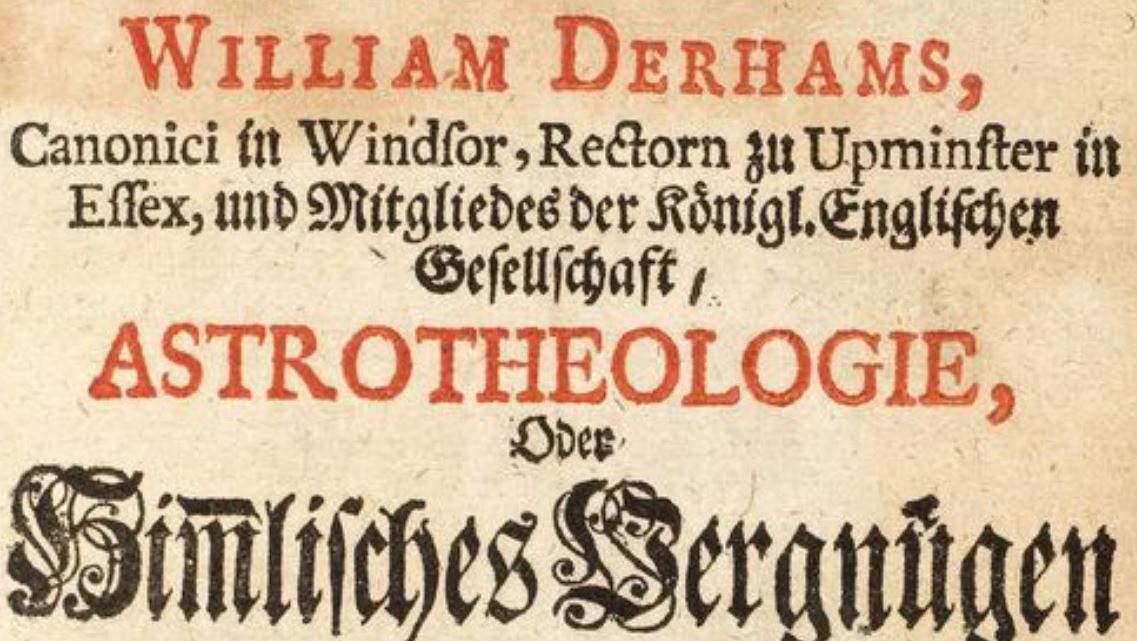 WILLIAM DERHAMS,
Canonici in Windſor, Rectorn zu Upminſter in
Eſſex, und Mitgliedes der Königl. Engliſchen
Geſellſchaft /
ASTROTHEOLOGIE,
Oder
Him̅liſches Vergnügen